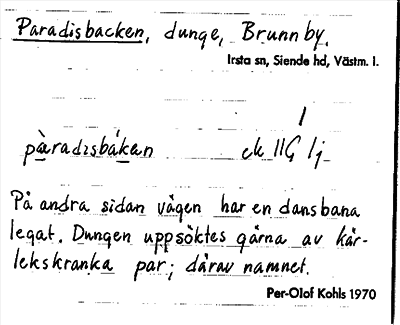 Paradisbacken, dunge, Brunnby.
Irsta sn, Siende hd, Västm. l.
pàradɪsbákan ek 11G 1j
På andra sidan vägen har en dansbana
legat. Dungen uppsöktes gärna av kär-
lekskranka par; därav namnet.
Per-Olof Kohls 1970